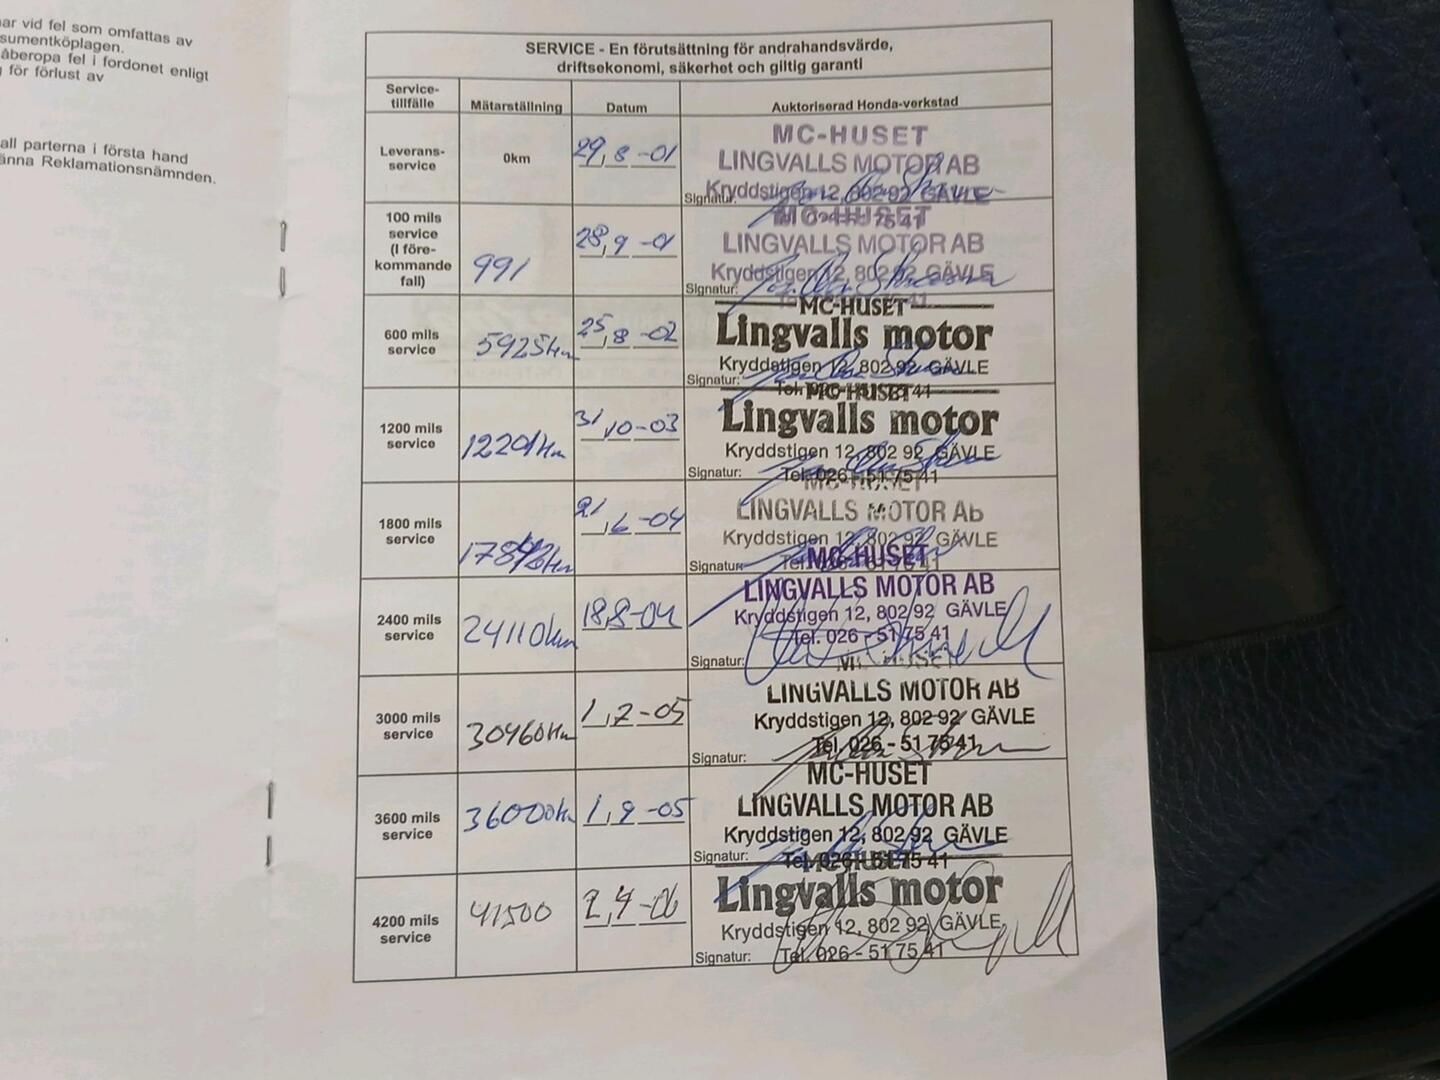 ar vid fel som omfattas av
sumentköplagen.
åberopa fel i fordonet enligt
för förlust av
all parterna i första hand
änna Reklamationsnämnden.
SERVICE - En förutsättning för andrahandsvärde,
driftsekonomi, säkerhet och giltig garanti
Service-
tillfälle
Mätarställning
Datum
Auktoriserad Honda-verkstad
Leverans-
service
0km
29,8-01
MC-HUSET
LINGVALLS MOTOR AB
Kryddstigen 12, 802 92 GÄVLE
Signatur:
100 mils
service
(I före-
kommande
fall)
991
28,9-01
MC-HUSET
LINGVALLS MOTOR AB
Kryddstigen 12, 802 92 GÄVLE
Signatur:
600 mils
service
5925km
25,8-02
MC-HUSET
Lingvalls motor
Kryddstigen 12, 802 92 GÄVLE
Signatur:
1200 mils
service
12201km
31,10-03
MC-HUSET
Lingvalls motor
Kryddstigen 12, 802 92 GÄVLE
Signatur:
Tel. 026 - 51 75 41
1800 mils
service
21,6-04
MC-HUSET
LINGVALLS MOTOR AB
Kryddstigen 12, 802 92 GÄVLE
Signatur:
2400 mils
service
24110km
18,8-04
MC-HUSET
LINGVALLS MOTOR AB
Kryddstigen 12, 802 92 GÄVLE
Tel. 026 - 51 75 41
Signatur:
3000 mils
service
30460km
1,2-05
MC-HUSET
LINGVALLS MOTOR AB
Kryddstigen 12, 802 92 GÄVLE
Tel. 026 - 51 75 41
Signatur:
3600 mils
service
36000km
1,9-05
MC-HUSET
LINGVALLS MOTOR AB
Kryddstigen 12, 802 92 GÄVLE
Signatur:
Tel. 026 - 51 75 41
4200 mils
service
41500
2,4-06
MC-HUSET
Lingvalls motor
Kryddstigen 12, 802 92 GÄVLE
Signatur:
Tel. 026 - 51 75 41